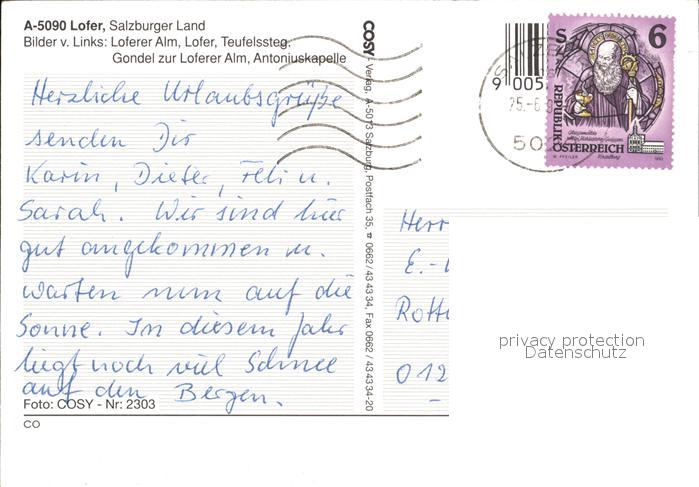 A-5090 Lofer, Salzburger Land
Bilder v. Links: Loferer Alm, Lofer, Teufelssteg,
Gondel zur Loferer Alm, Antoniuskapelle
Herzliche Urlaubsgrüße
senden Dir
Karin, Dieter, Feli u.
Sarah. Wir sind hier
gut angekommen u.
warten nun auf die
Sonne. In diesem Jahr
liegt noch viel Schnee
auf den Bergen.
Foto: COSY - Nr: 2303
CO
COSY - Verlag, A-5013 Salzburg, Postfach 35, ☎ 0662/43 43 34, Fax 0662 / 43 43 34-20
9 005
25.-6
50
S 6
REPUBLIK
ÖSTERREICH
Herr
E.-
Rott
012
-
privacy protection
Datenschutz